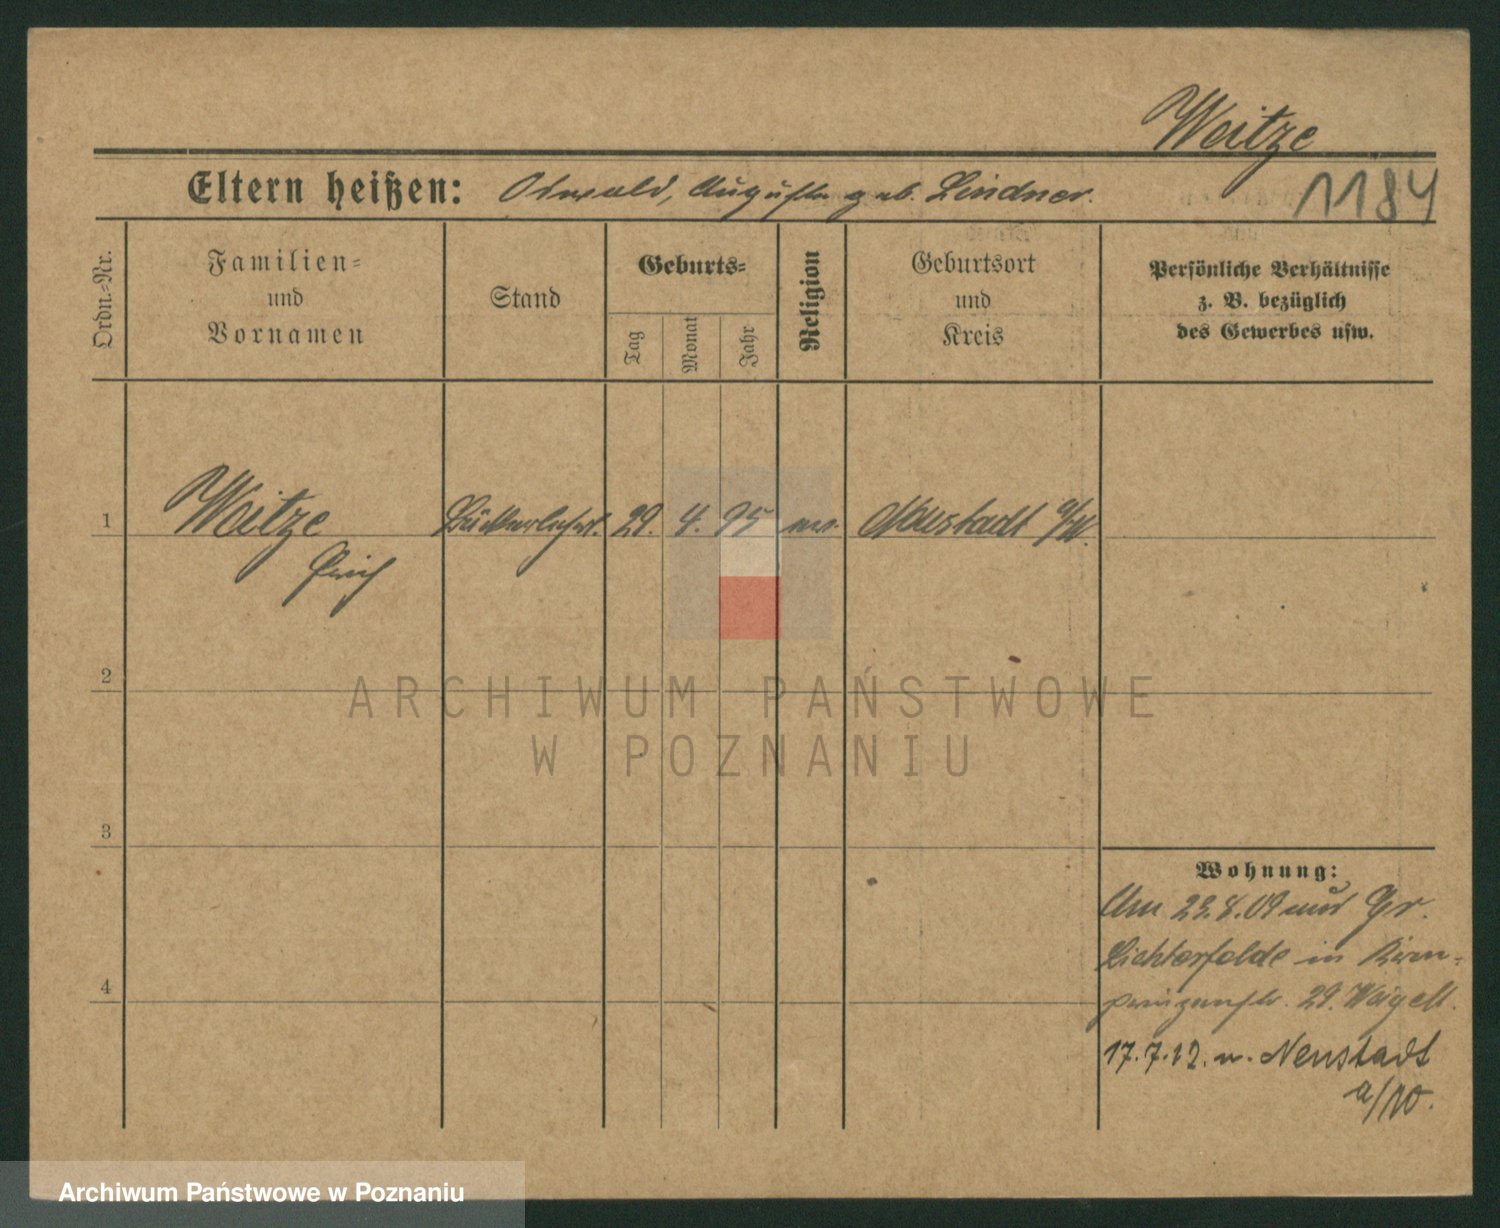 Weitze
Eltern heißen: Oswald, Auguste geb. Lindner.
1184
Ordn.-Nr.
Familien-
und
Vornamen
Stand
Geburts-
Tag
Monat
Jahr
Religion
Geburtsort
und
Kreis
Persönliche Verhältnisse
z. B. bezüglich
des Gewerbes usw.
1
Weitze
Erich
Bäckerlehrl. 29. 4. 95 ev. Neustadt a/W.
2
ARCHIWUM PAŃSTWOWE
W POZNANIU
3
Wohnung:
Am 23.8.09 aus Gr.
Lichterfelde in Kron-
prinzenstr. 29. Weigelt.
4
17.7.12. n. Neustadt
a/W.
Archiwum Państwowe w Poznaniu